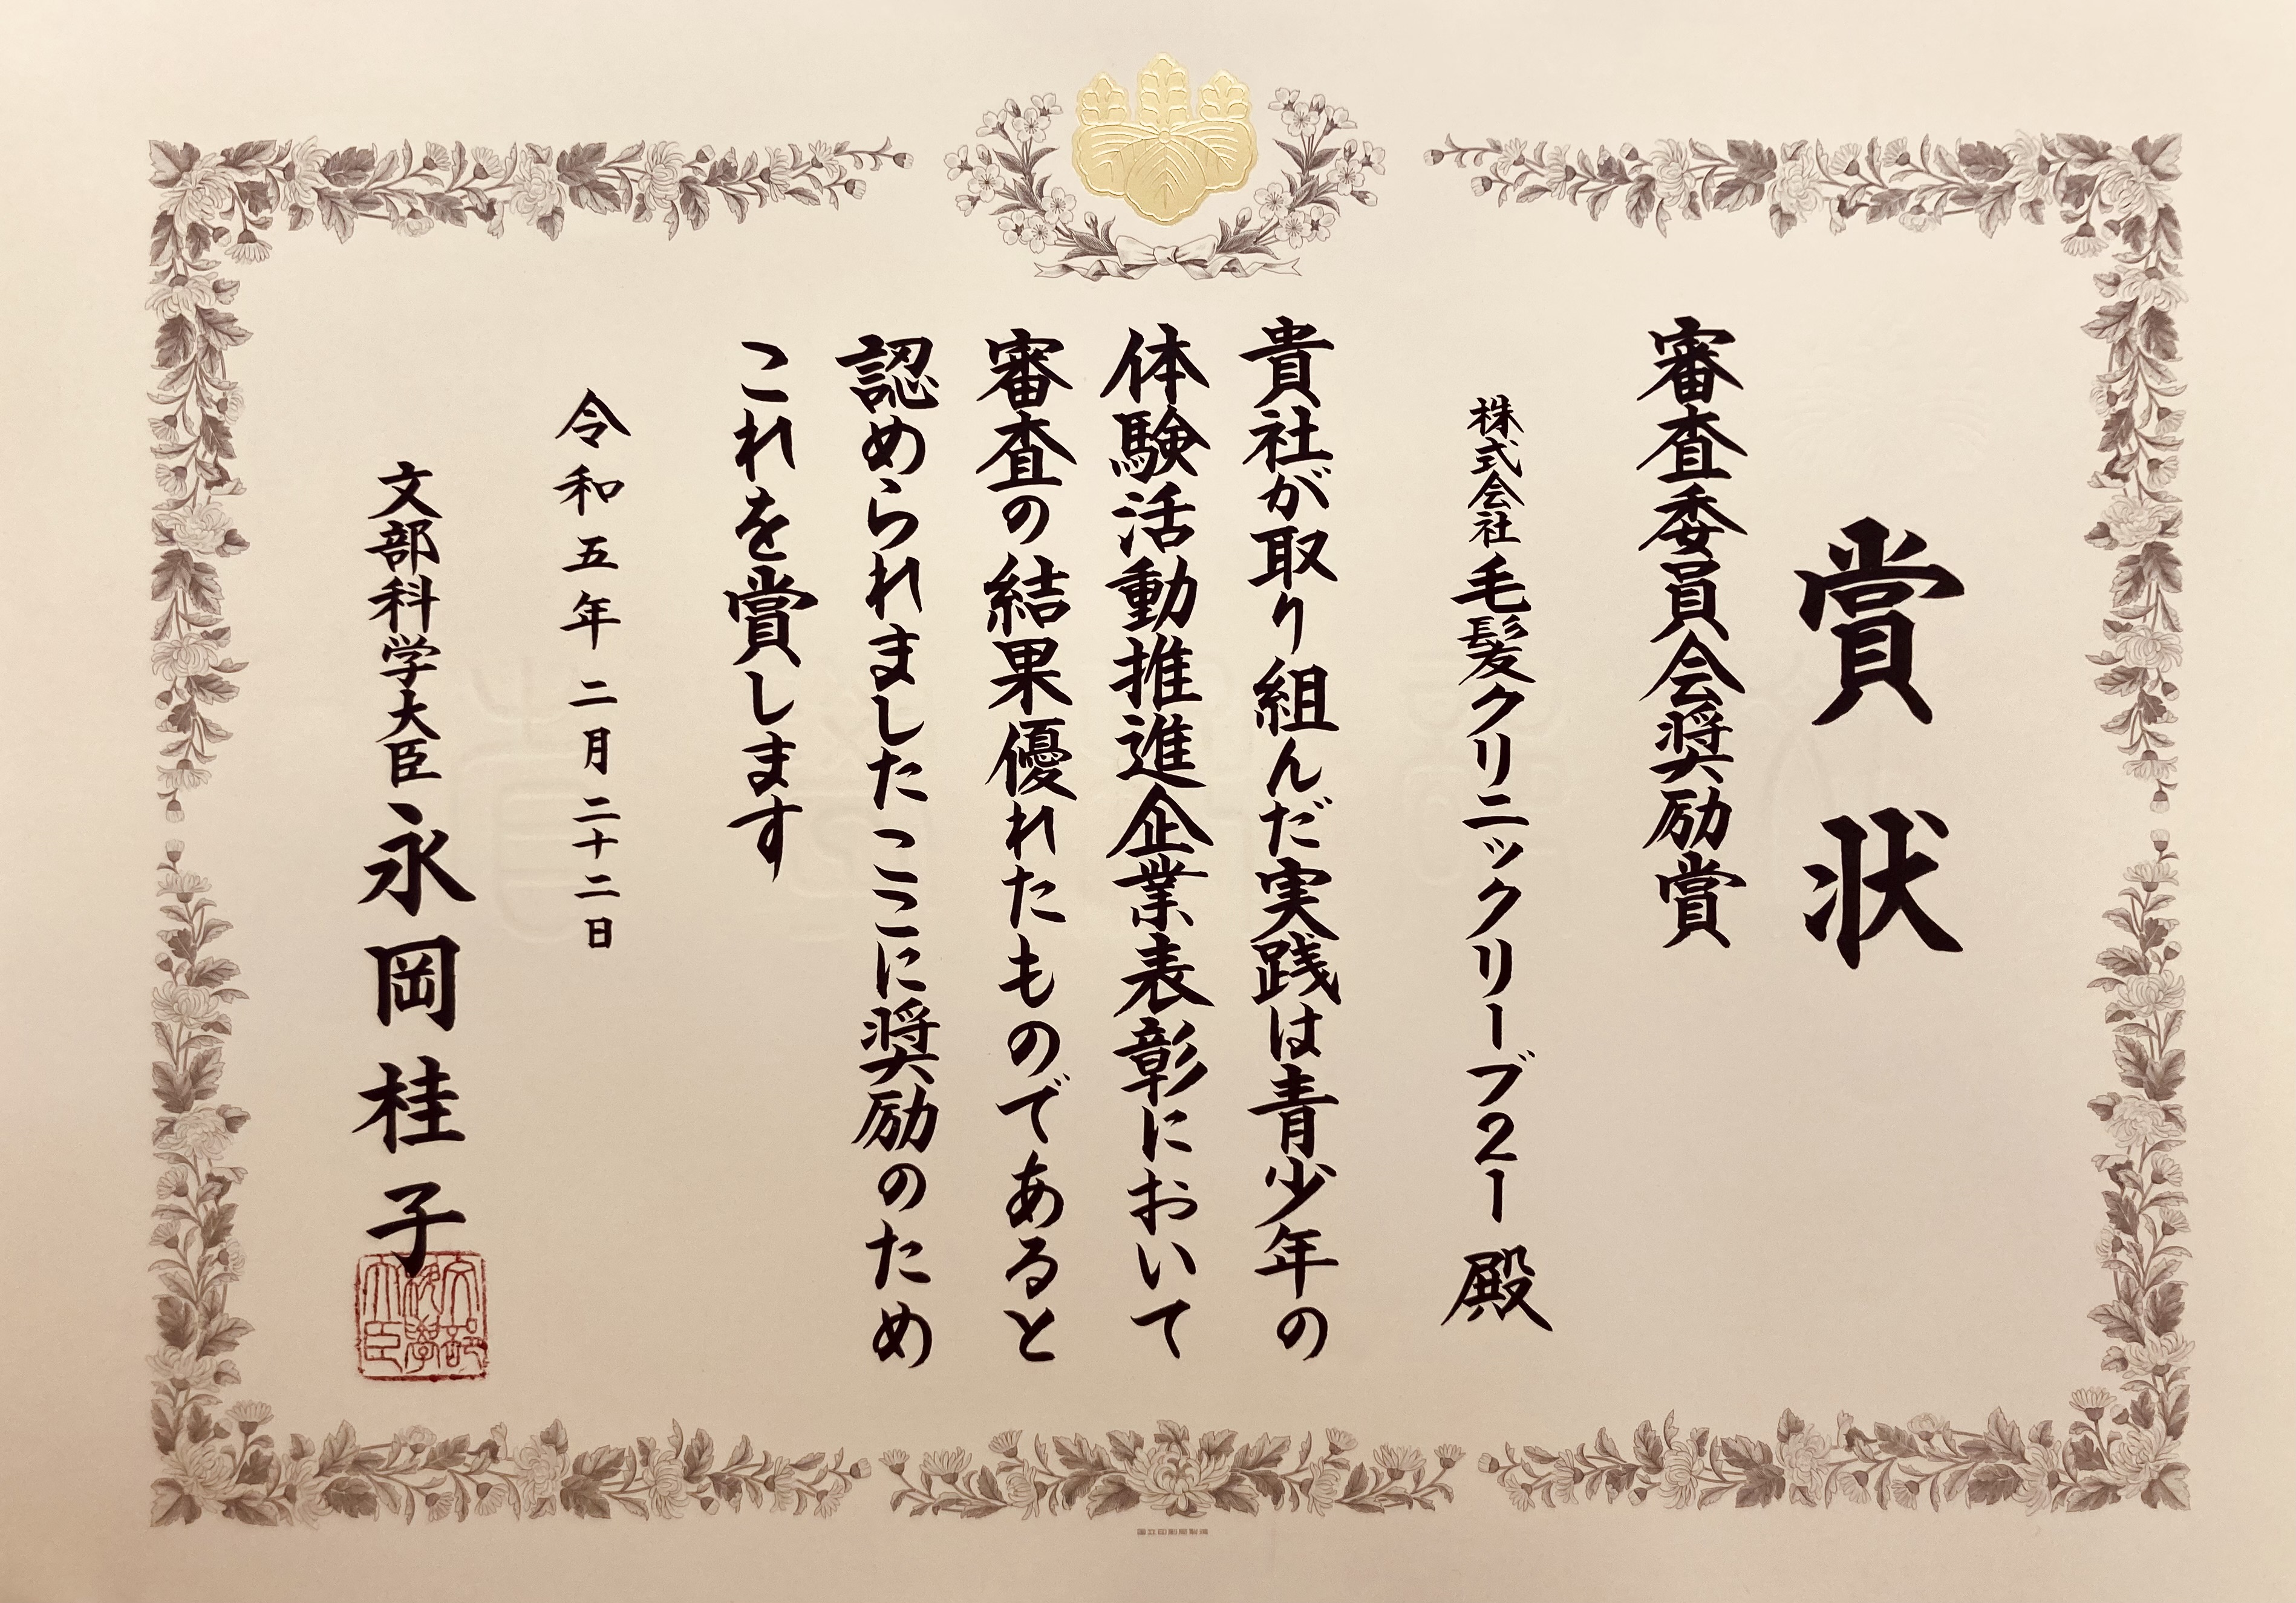 賞状
審査委員会奨励賞
株式会社毛髪クリニックリーブ21 殿
貴社が取り組んだ実践は青少年の
体験活動推進企業表彰において
審査の結果優れたものであると
認められましたここに奨励のため
これを賞します
令和五年二月二十二日
文部科学大臣 永岡桂子
文部科学大臣